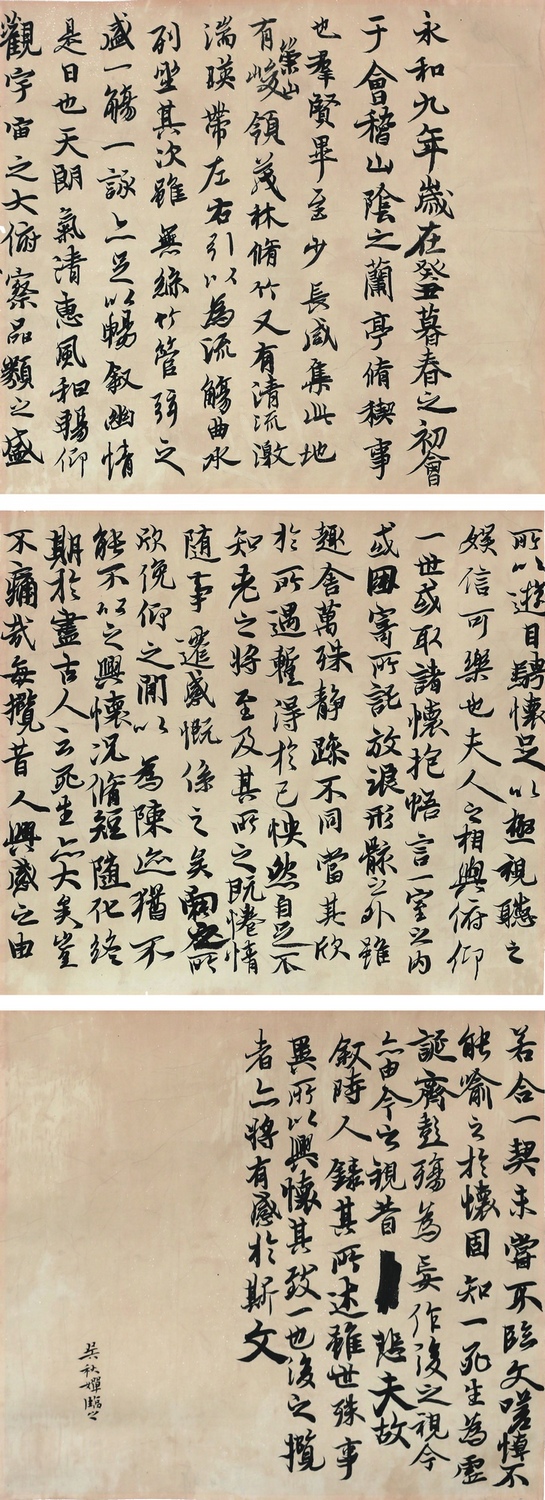 永和九年歲在癸丑暮春之初會
于會稽山陰之蘭亭脩稧事
也羣賢畢至少長咸集此地
有崇山峻領茂林脩竹又有清流激
湍暎帶左右引以為流觴曲水
列坐其次雖無絲竹管弦之
盛一觴一詠亦足以暢敘幽情
是日也天朗氣清惠風和暢仰
觀宇宙之大俯察品類之盛
所以遊目騁懷足以極視聽之
娛信可樂也夫人之相與俯仰
一世或取諸懷抱悟言一室之內
或因寄所託放浪形骸之外雖
趣舍萬殊靜躁不同當其欣
於所遇蹔得於己怏然自足不
知老之將至及其所之既惓情
隨事遷感慨係之矣向之所
欣俛仰之閒以為陳迹猶不
能不以之興懷況脩短隨化終
期於盡古人云死生亦大矣豈
不痛哉每攬昔人興感之由
若合一契未嘗不臨文嗟悼不
能喻之於懷固知一死生為虛
誕齊彭殤為妄作後之視今
亦由今之視昔悲夫故
敘時人錄其所述雖世殊事
異所以興懷其致一也後之攬
者亦將有感於斯文
吳秋嬋臨之